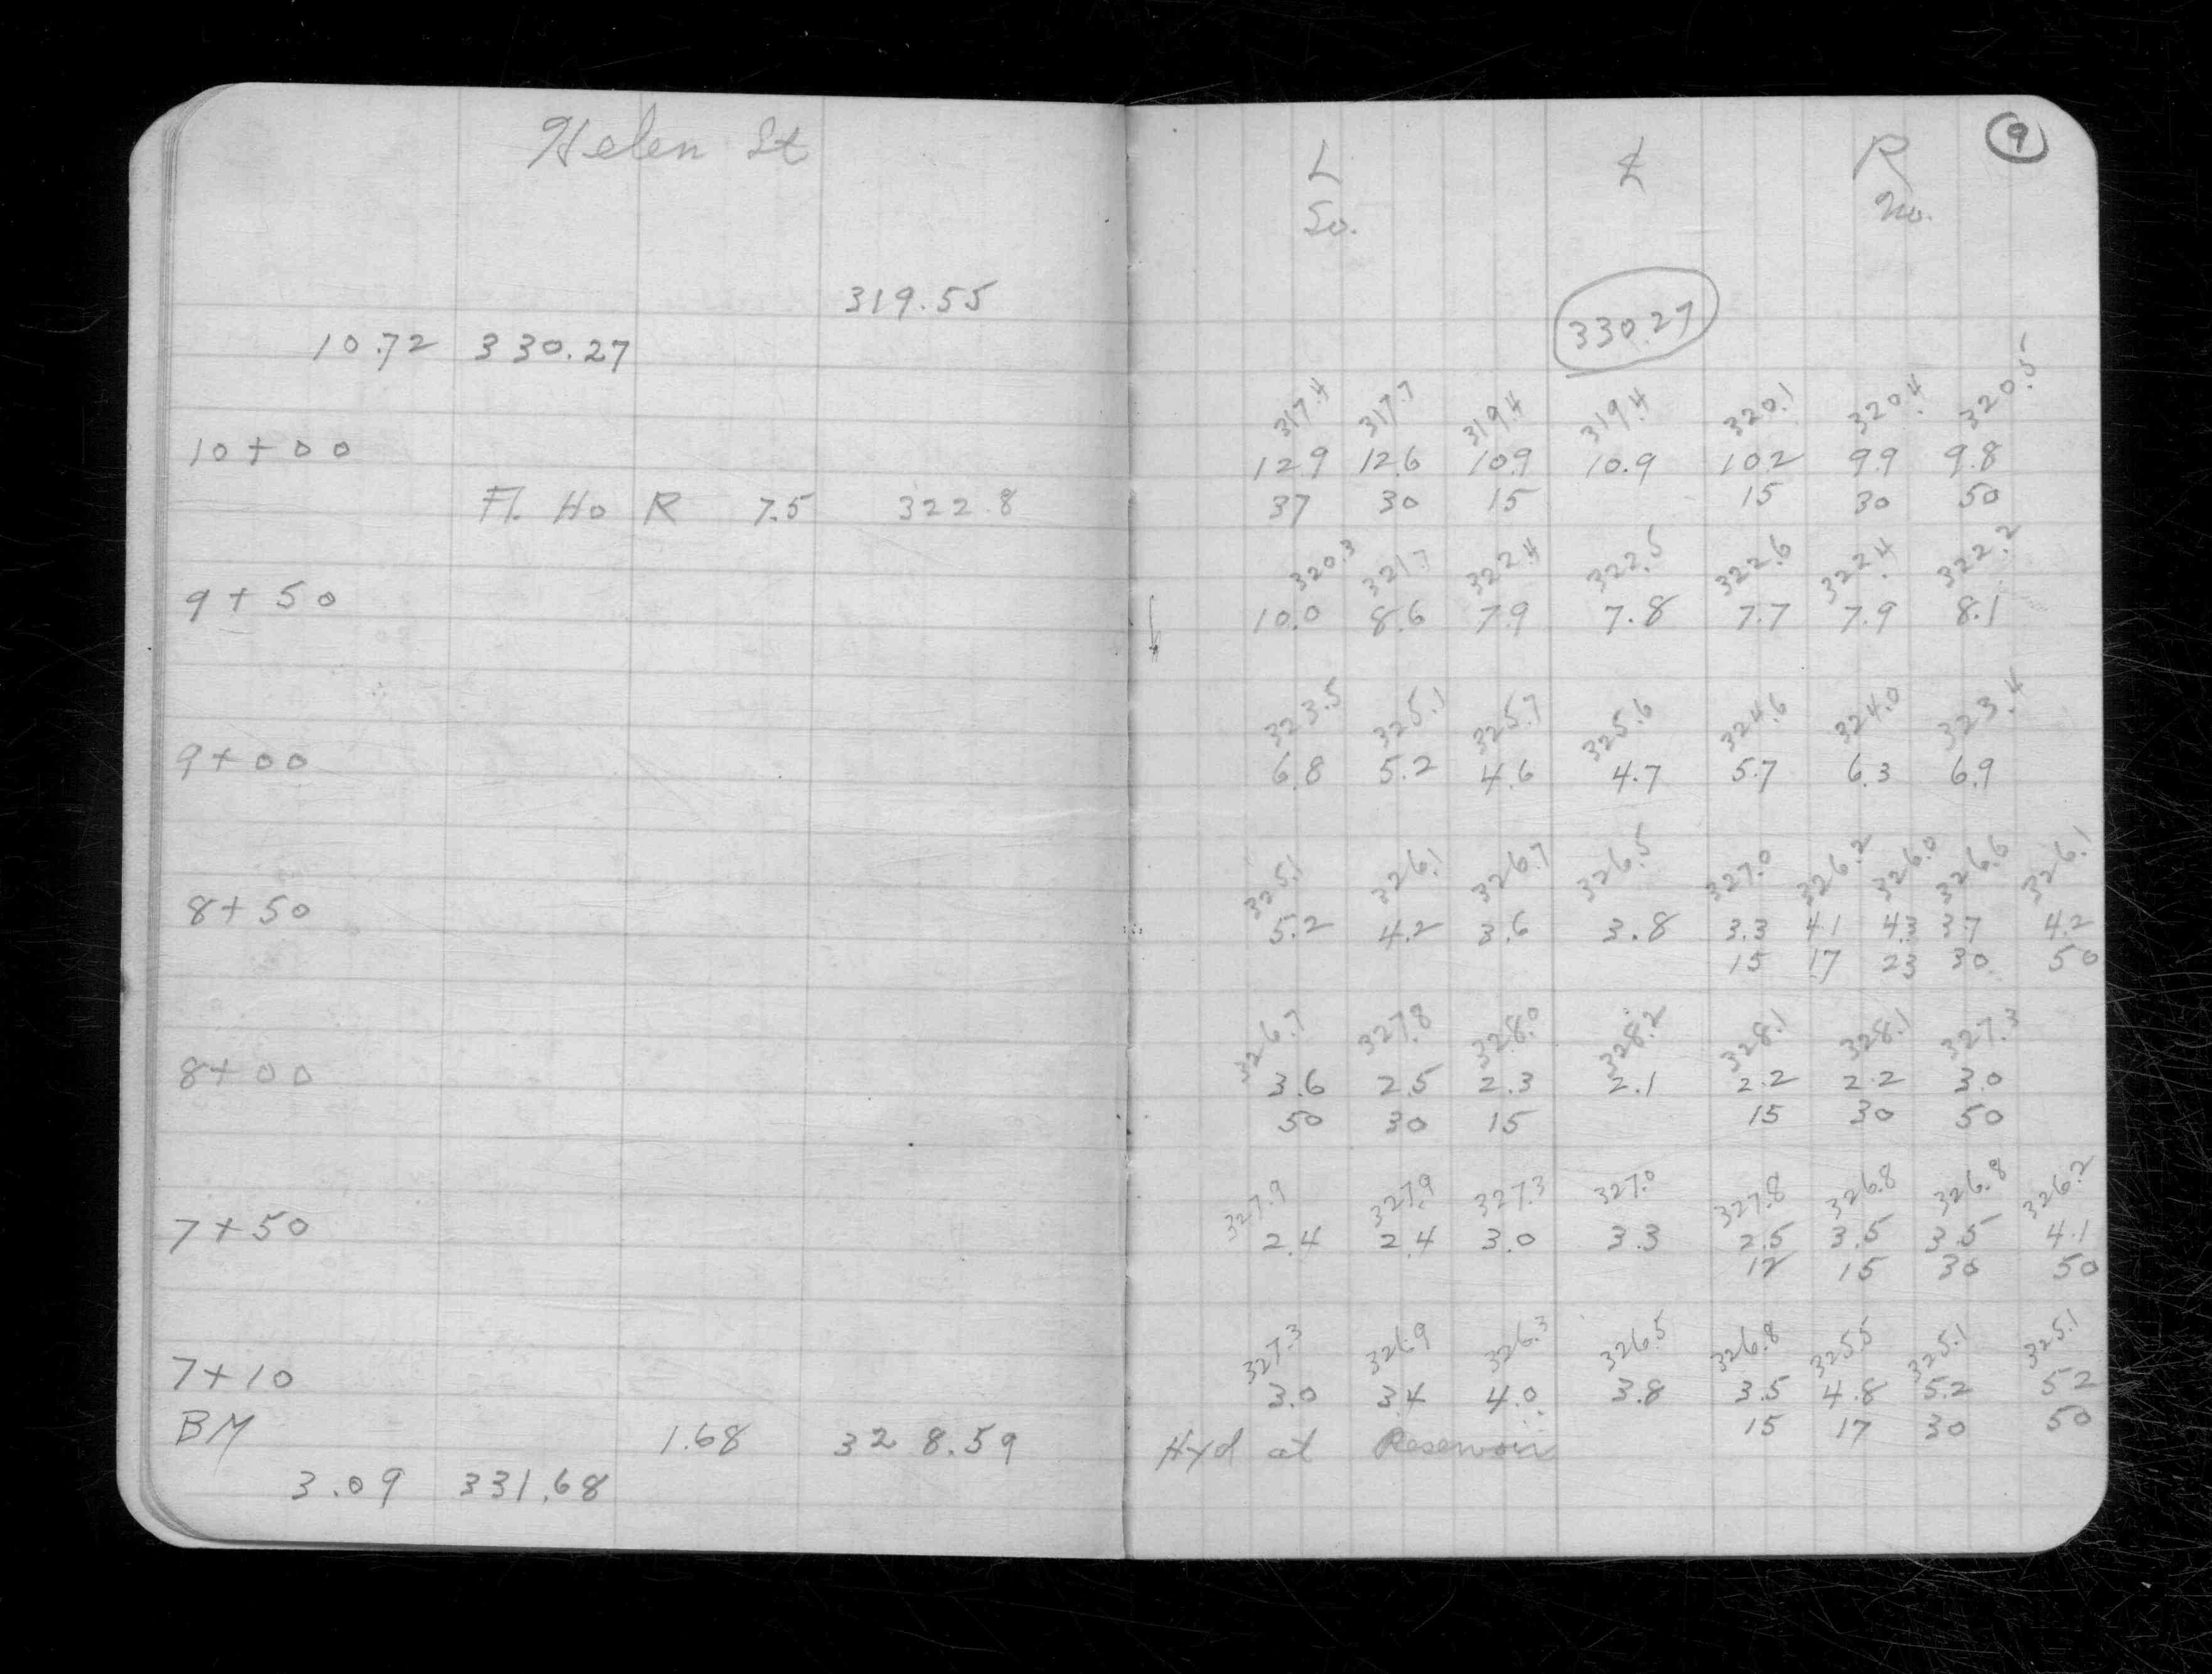 Helen St
319.55
10.72 330.27
10+00
Fl. Ho R 7.5 322.8
9+50
9+00
8+50
8+00
7+50
7+10
BM 1.68 328.59
3.09 331.68
9
L ℄ R
So. No.
330.27
317.4 317.7 319.4 319.4 320.1 320.4 320.5
12.9 12.6 10.9 10.9 10.2 9.9 9.8
37 30 15 15 30 50
320.3 321.7 322.4 322.5 322.6 322.4 322.2
10.0 8.6 7.9 7.8 7.7 7.9 8.1
323.5 325.1 325.7 325.6 324.6 324.0 323.4
6.8 5.2 4.6 4.7 5.7 6.3 6.9
325.1 326.1 326.7 326.5 327.0 326.2 326.0 326.6 326.1
5.2 4.2 3.6 3.8 3.3 4.1 4.3 3.7 4.2
15 17 23 30 50
326.7 327.8 328.0 328.2 328.1 328.1 327.3
3.6 2.5 2.3 2.1 2.2 2.2 3.0
50 30 15 15 30 50
327.9 327.9 327.3 327.0 327.8 326.8 326.8 326.2
2.4 2.4 3.0 3.3 2.5 3.5 3.5 4.1
12 15 30 50
327.3 326.9 326.3 326.5 326.8 325.5 325.1 325.1
3.0 3.4 4.0 3.8 3.5 4.8 5.2 5.2
15 17 30 50
Hyd at Reservoir